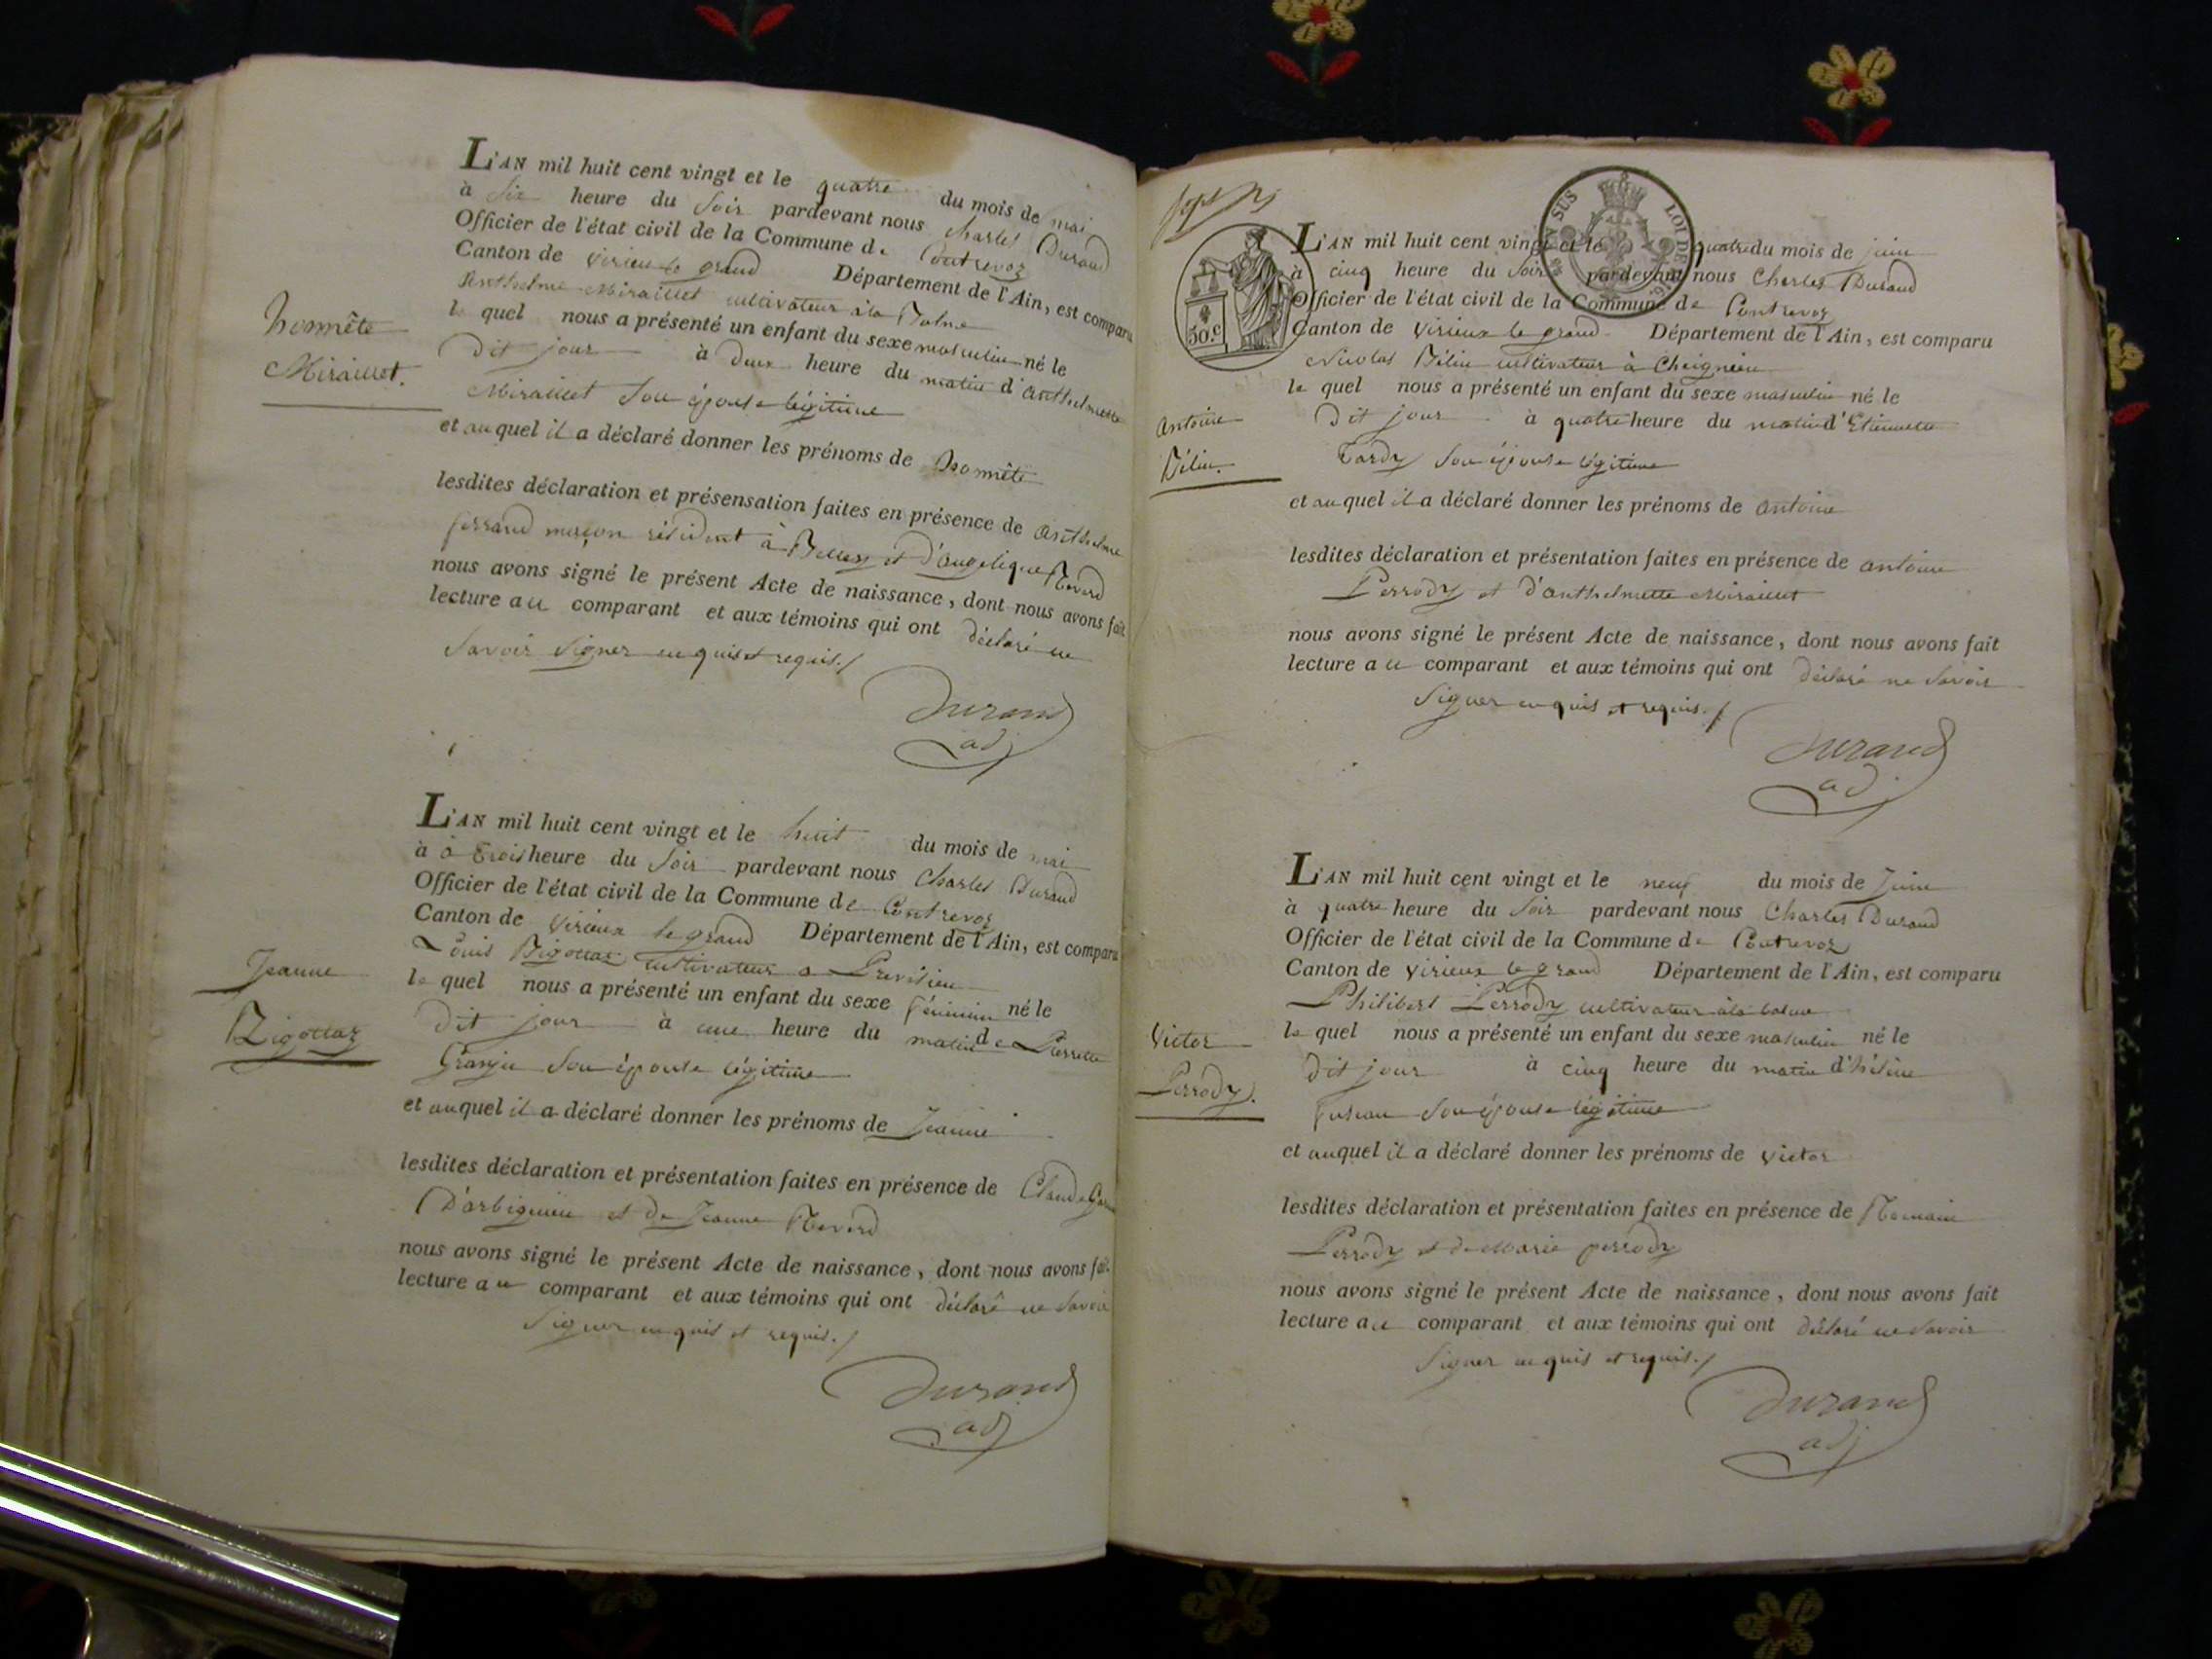 L'AN mil huit cent vingt et le quatre du mois de mai
à six heure du soir pardevant nous Charles Durand
Officier de l'état civil de la Commune de Contrevoz
Canton de virieu le grand Département de l'Ain, est comparu
Anthelme Miraillet cultivateur à la Balme
le quel nous a présenté un enfant du sexe masculin né le
dit jour à deux heure du matin d'anthelmette
Miraillet son épouse légitime
et auquel il a déclaré donner les prénoms de honnête
lesdites déclaration et présensation faites en présence de anthelme
ferrand maçon résident à Belley et d'angelique Reverd
nous avons signé le présent Acte de naissance, dont nous avons fait
lecture au comparant et aux témoins qui ont déclaré ne
savoir signer enquis et requis./
Durand
adj
honnête
Miraillet.
L'AN mil huit cent vingt et le huit du mois de mai
à trois heure du soir pardevant nous Charles Durand
Officier de l'état civil de la Commune de Contrevoz
Canton de virieux le grand Département de l'Ain, est comparu
Louis Bigottaz cultivateur a Preveisieu
le quel nous a présenté un enfant du sexe féminin né le
dit jour à une heure du matin de Pierrette
son épouse légitime
et auquel il a déclaré donner les prénoms de Jeanne
lesdites déclaration et présentation faites en présence de Claude
D'arbignieu et de Jeanne Reverd
nous avons signé le présent Acte de naissance, dont nous avons fait
lecture au comparant et aux témoins qui ont déclaré ne savoir
signer enquis et requis./
Durand
adj
Jeanne
Bigottaz
30.c
L'AN mil huit cent vingt et le quatre du mois de juin
à cinq heure du soir pardevant nous Charles Durand
Officier de l'état civil de la Commune de Contrevoz
Canton de virieux le grand Département de l'Ain, est comparu
Nicolas Bélin cultivateur à Cheignieu
le quel nous a présenté un enfant du sexe masculin né le
dit jour à quatre heure du matin d'Etiennette
Tardy son épouse légitime
et auquel il a déclaré donner les prénoms de antoine
lesdites déclaration et présentation faites en présence de antoine
Perrody et d'anthelmette Miraillet
nous avons signé le présent Acte de naissance, dont nous avons fait
lecture au comparant et aux témoins qui ont déclaré ne savoir
signer enquis et requis./
Durand
adj
antoine
Bélin.
L'AN mil huit cent vingt et le neuf du mois de Juin
à quatre heure du soir pardevant nous Charles Durand
Officier de l'état civil de la Commune de Contrevoz
Canton de virieux le grand Département de l'Ain, est comparu
Philibert Perrody cultivateur à la balme
le quel nous a présenté un enfant du sexe masculin né le
dit jour à cinq heure du matin d'héleine
son épouse légitime
et auquel il a déclaré donner les prénoms de victor
lesdites déclaration et présentation faites en présence de Romain
Perrody et de Marie perrody
nous avons signé le présent Acte de naissance, dont nous avons fait
lecture au comparant et aux témoins qui ont déclaré ne savoir
signer enquis et requis./
Durand
adj
Victor
Perrody.